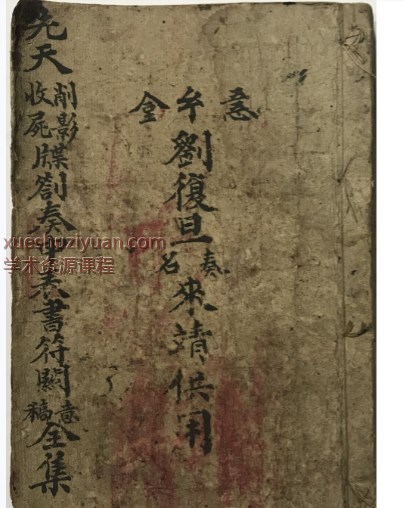 劉復旦奏名來靖供用
先天削影收屍牒劄奏申表書符關意稿全集
xueshuziyuan.com
学术资源课程